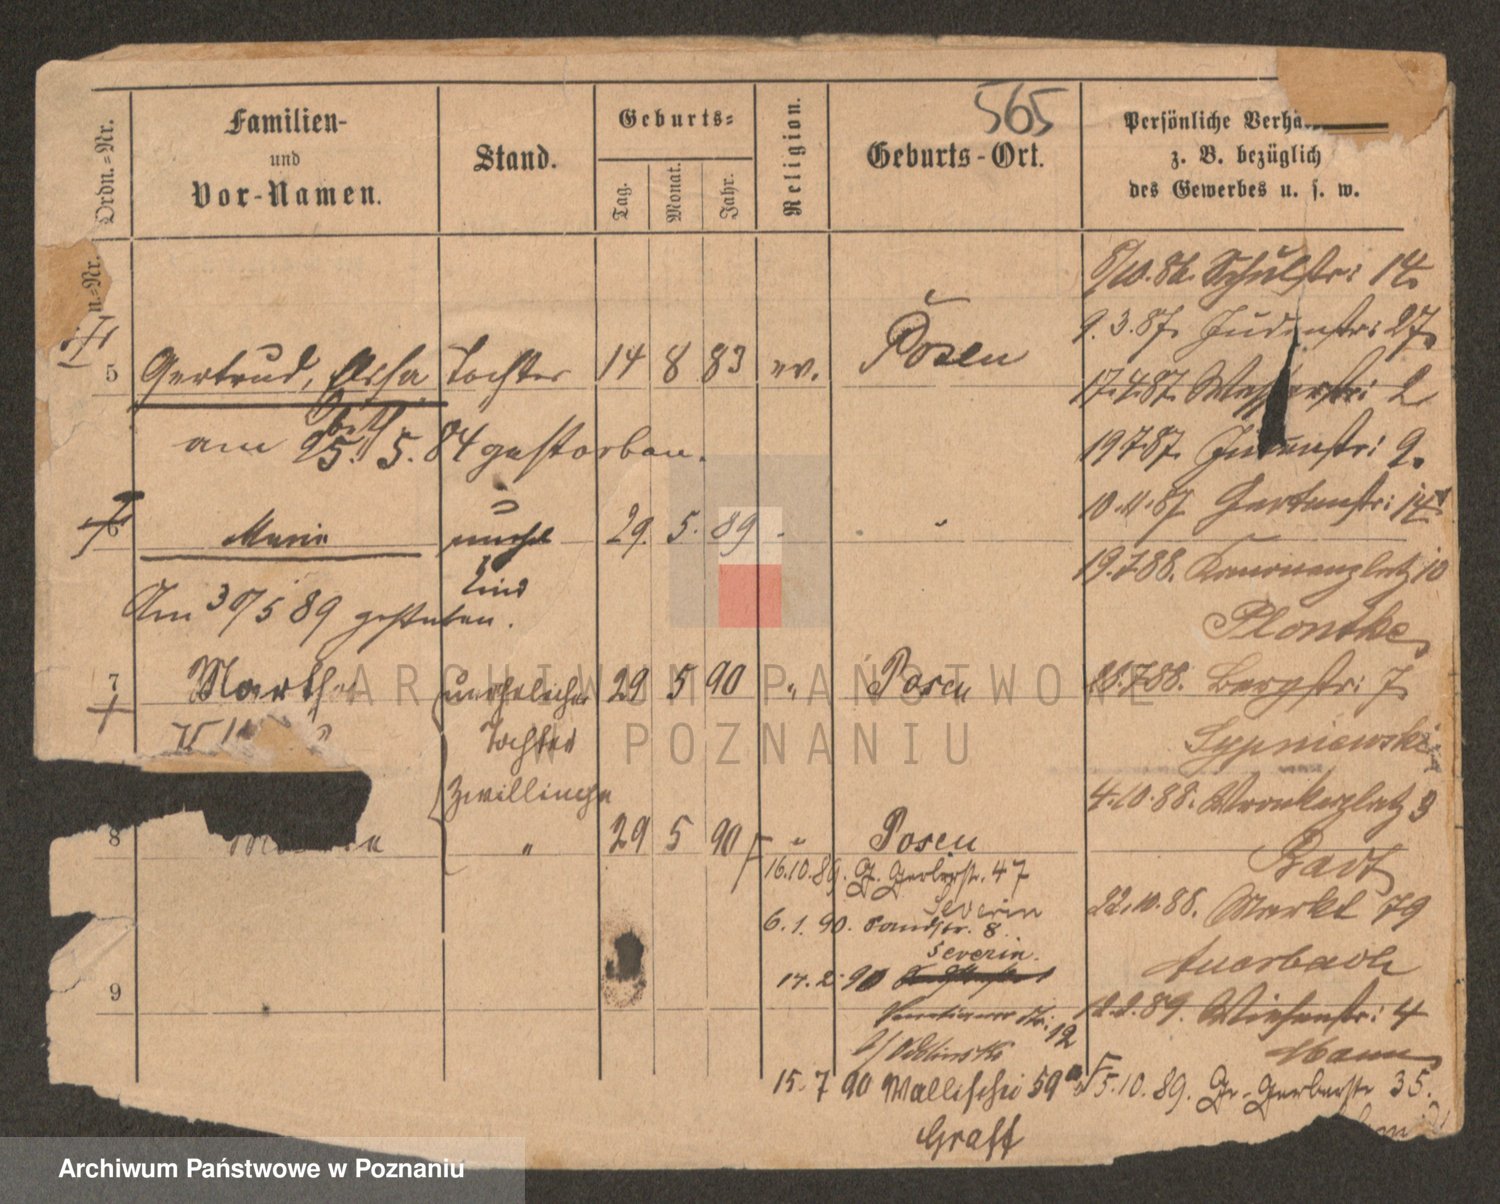 565
Ordn.=Nr.
Familien-
und
Vor-Namen.
Stand.
Geburts=
Tag.
Monat.
Jahr.
Religion.
Geburts-Ort.
Persönliche
z. B. bezüglich
des Gewerbes u. s. w.
n.=Nr.
5 Gertrud, Tochter 14 8 83 ev. Posen
am 5. 84 gestorben.
6 Marie unehel 29. 5. 89
Kind
Am 30/5 89 gestorben.
7 Martha uneheliche 29 5 90 " Posen
Tochter
Zwillinge
8 " 29 5 90 " Posen
9
8/10.86. Schulstr: 14.
9.3.87. Judenstr: 27.
17.4.87. Wasserstr: 2
19.7.87. Judenstr: 9.
10.11.87. Gartenstr: 14
19.7.88. Kanonenplatz 10
Plontke
28.7.88. Bergstr: 7
Sypniewski
4.10.88. Wronkerplatz 3
Badt
22.10.88. Markt 79
Auerbach
12.2.89. Wiesenstr: 4
Mann
5.10.89. Gr. Gerberstr 35.
16.10.89. Gr. Gerberstr. 47
Severin
6.1.90. Sandstr. 8
Severin.
17.2.90
Venetianer str. 12
15.7 90 Wallischei 59a
Graff
ARCHIWUM PAŃSTWOWE
W POZNANIU
Archiwum Państwowe w Poznaniu